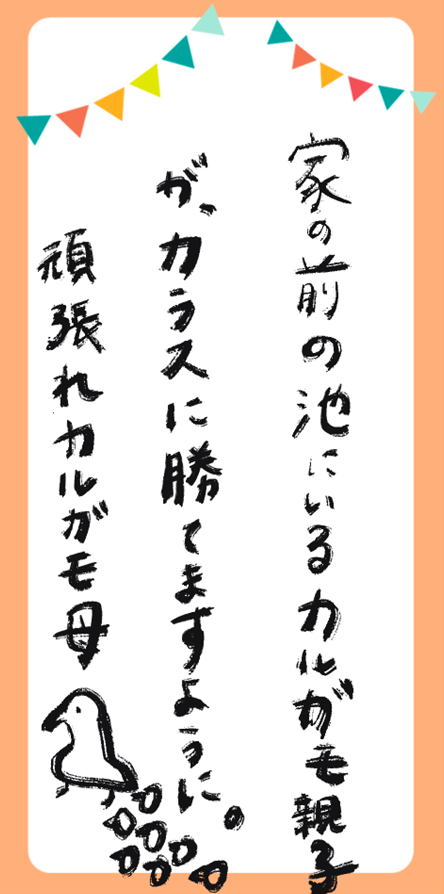 家の前の池にいるカルガモ親子
が、カラスに勝てますように。
頑張れカルガモ母